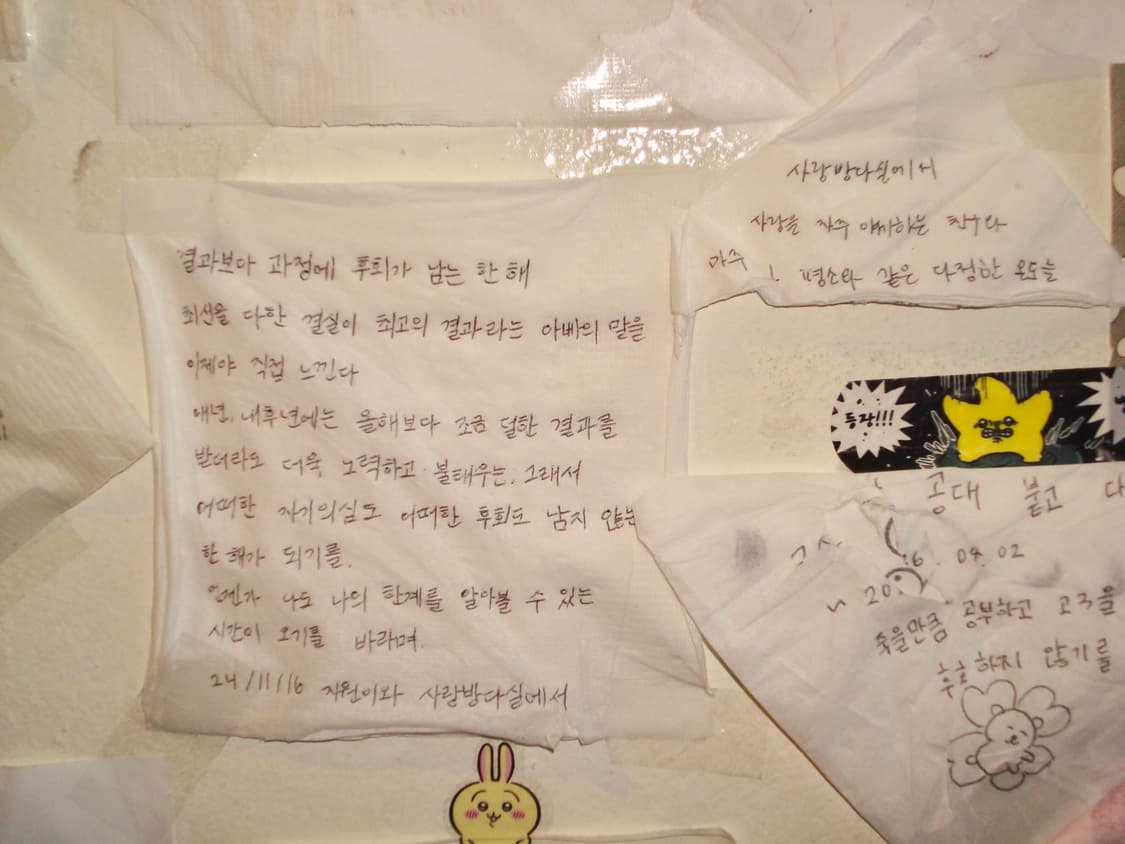 결과보다 과정에 후회가 남는 한 해
최선을 다한 결실이 최고의 결과라는 아빠의 말을
이제야 직접 느낀다
내년, 내후년에는 올해보다 조금 덜한 결과를
받더라도 더욱 노력하고 불태우는, 그래서
어떠한 자기의심도 어떠한 후회도 남지 않는
한 해가 되기를.
언젠가 나도 나의 한계를 알아볼 수 있는
시간이 오기를 바라며.
24/11/16 지원이와 사랑방다실에서
사랑방다실에서
사랑을 자주 하는
마주 평소와 같은 다정한 온도들
등장!!!
공대 붙고
09.02
죽을만큼 공부하고 고3을
후회하지 않기를